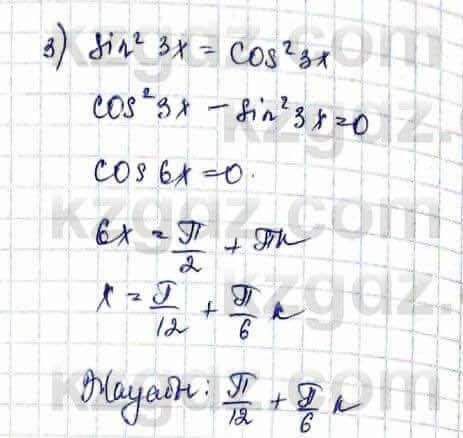 3) sin² 3x = cos² 3x
cos² 3x − sin² 3x = 0
cos 6x = 0.
6x = π/2 + πk
x = π/12 + π/6 k
Жауабы: π/12 + π/6 k
kzgaz.com